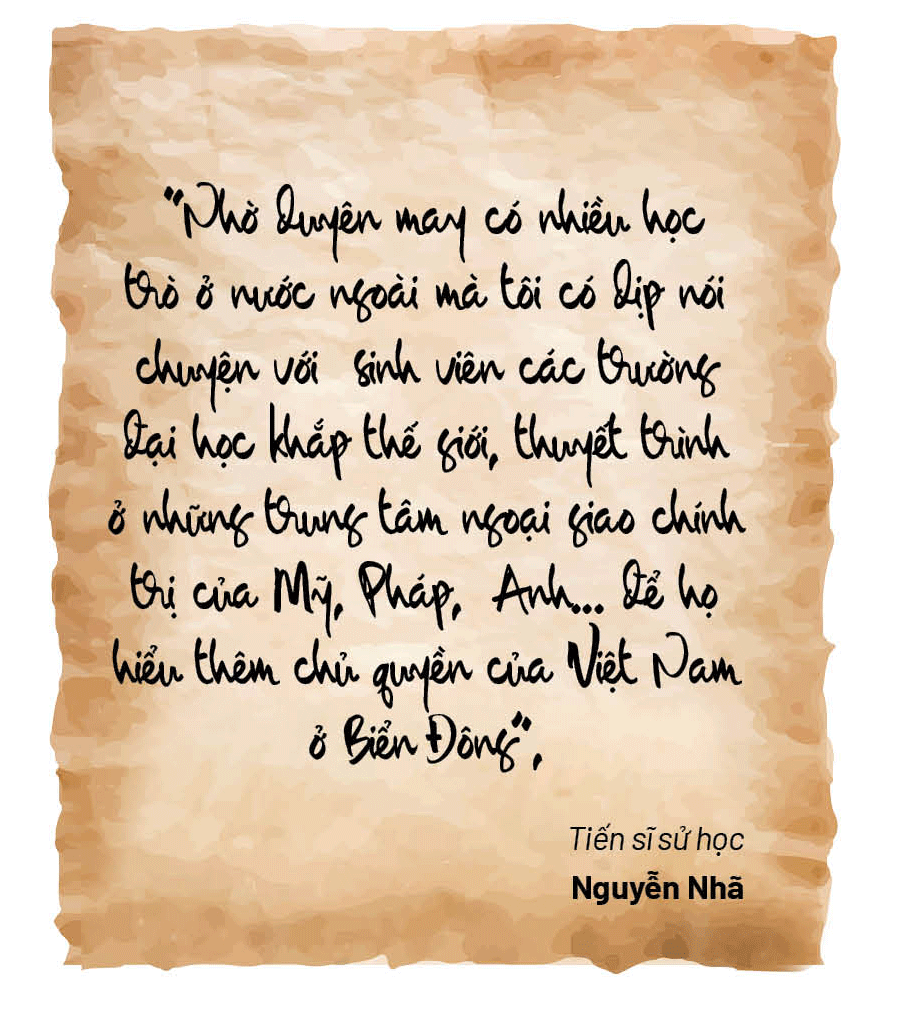 "Nhờ duyên may có nhiều học
trò ở nước ngoài mà tôi có dịp nói
chuyện với sinh viên các trường
đại học khắp thế giới, thuyết trình
ở những trung tâm ngoại giao chính
trị của Mỹ, Pháp, Anh... để họ
hiểu thêm chủ quyền của Việt Nam
ở Biển Đông",
Tiến sĩ sử học
Nguyễn Nhã